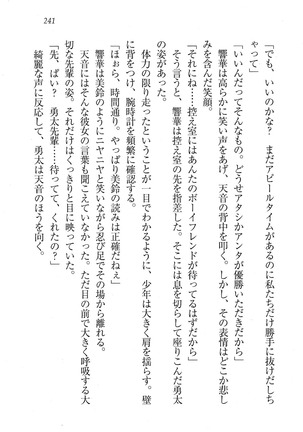 241
「でも、いいのかな？　まだアピールタイムがあるのに私たちだけ勝手に抜けだしち
ゃって」
「いいんだってそんなもの。どうせアタシかアンタが優勝いただきだから」
響華は高らかに笑い声をあげ、天音の背中を叩く。しかし、その表情はどこか悲し
みを含んだ笑顔。
「それにね……控え室にはあんたのボーイフレンドが待ってるはずだから」
そう言うと、響華は控え室の先を指差した。そこには息を切らして座りこんだ勇太
の姿があった。
体力の限り走ったということが一目でわかるように、少年は大きく肩を揺らす。壁
に背をつけ、腕時計を頻繁に確認する。
「ほぉら、時間通り。やっぱり美鈴の読みは正確だねぇ」
響華は美鈴のようにニヤニヤと笑いながら忍び足でその場から離れる。
天音にはそんな彼女の言葉も聞こえていなかった。ただ目の前で大きく呼吸する大
切な先輩の姿。それだけはくっきりと目に映っていた。
「先、ぱい？　勇太先輩……待ってて、くれたの？」
綺麗な声に反応して、勇太は天音のほうを向く。